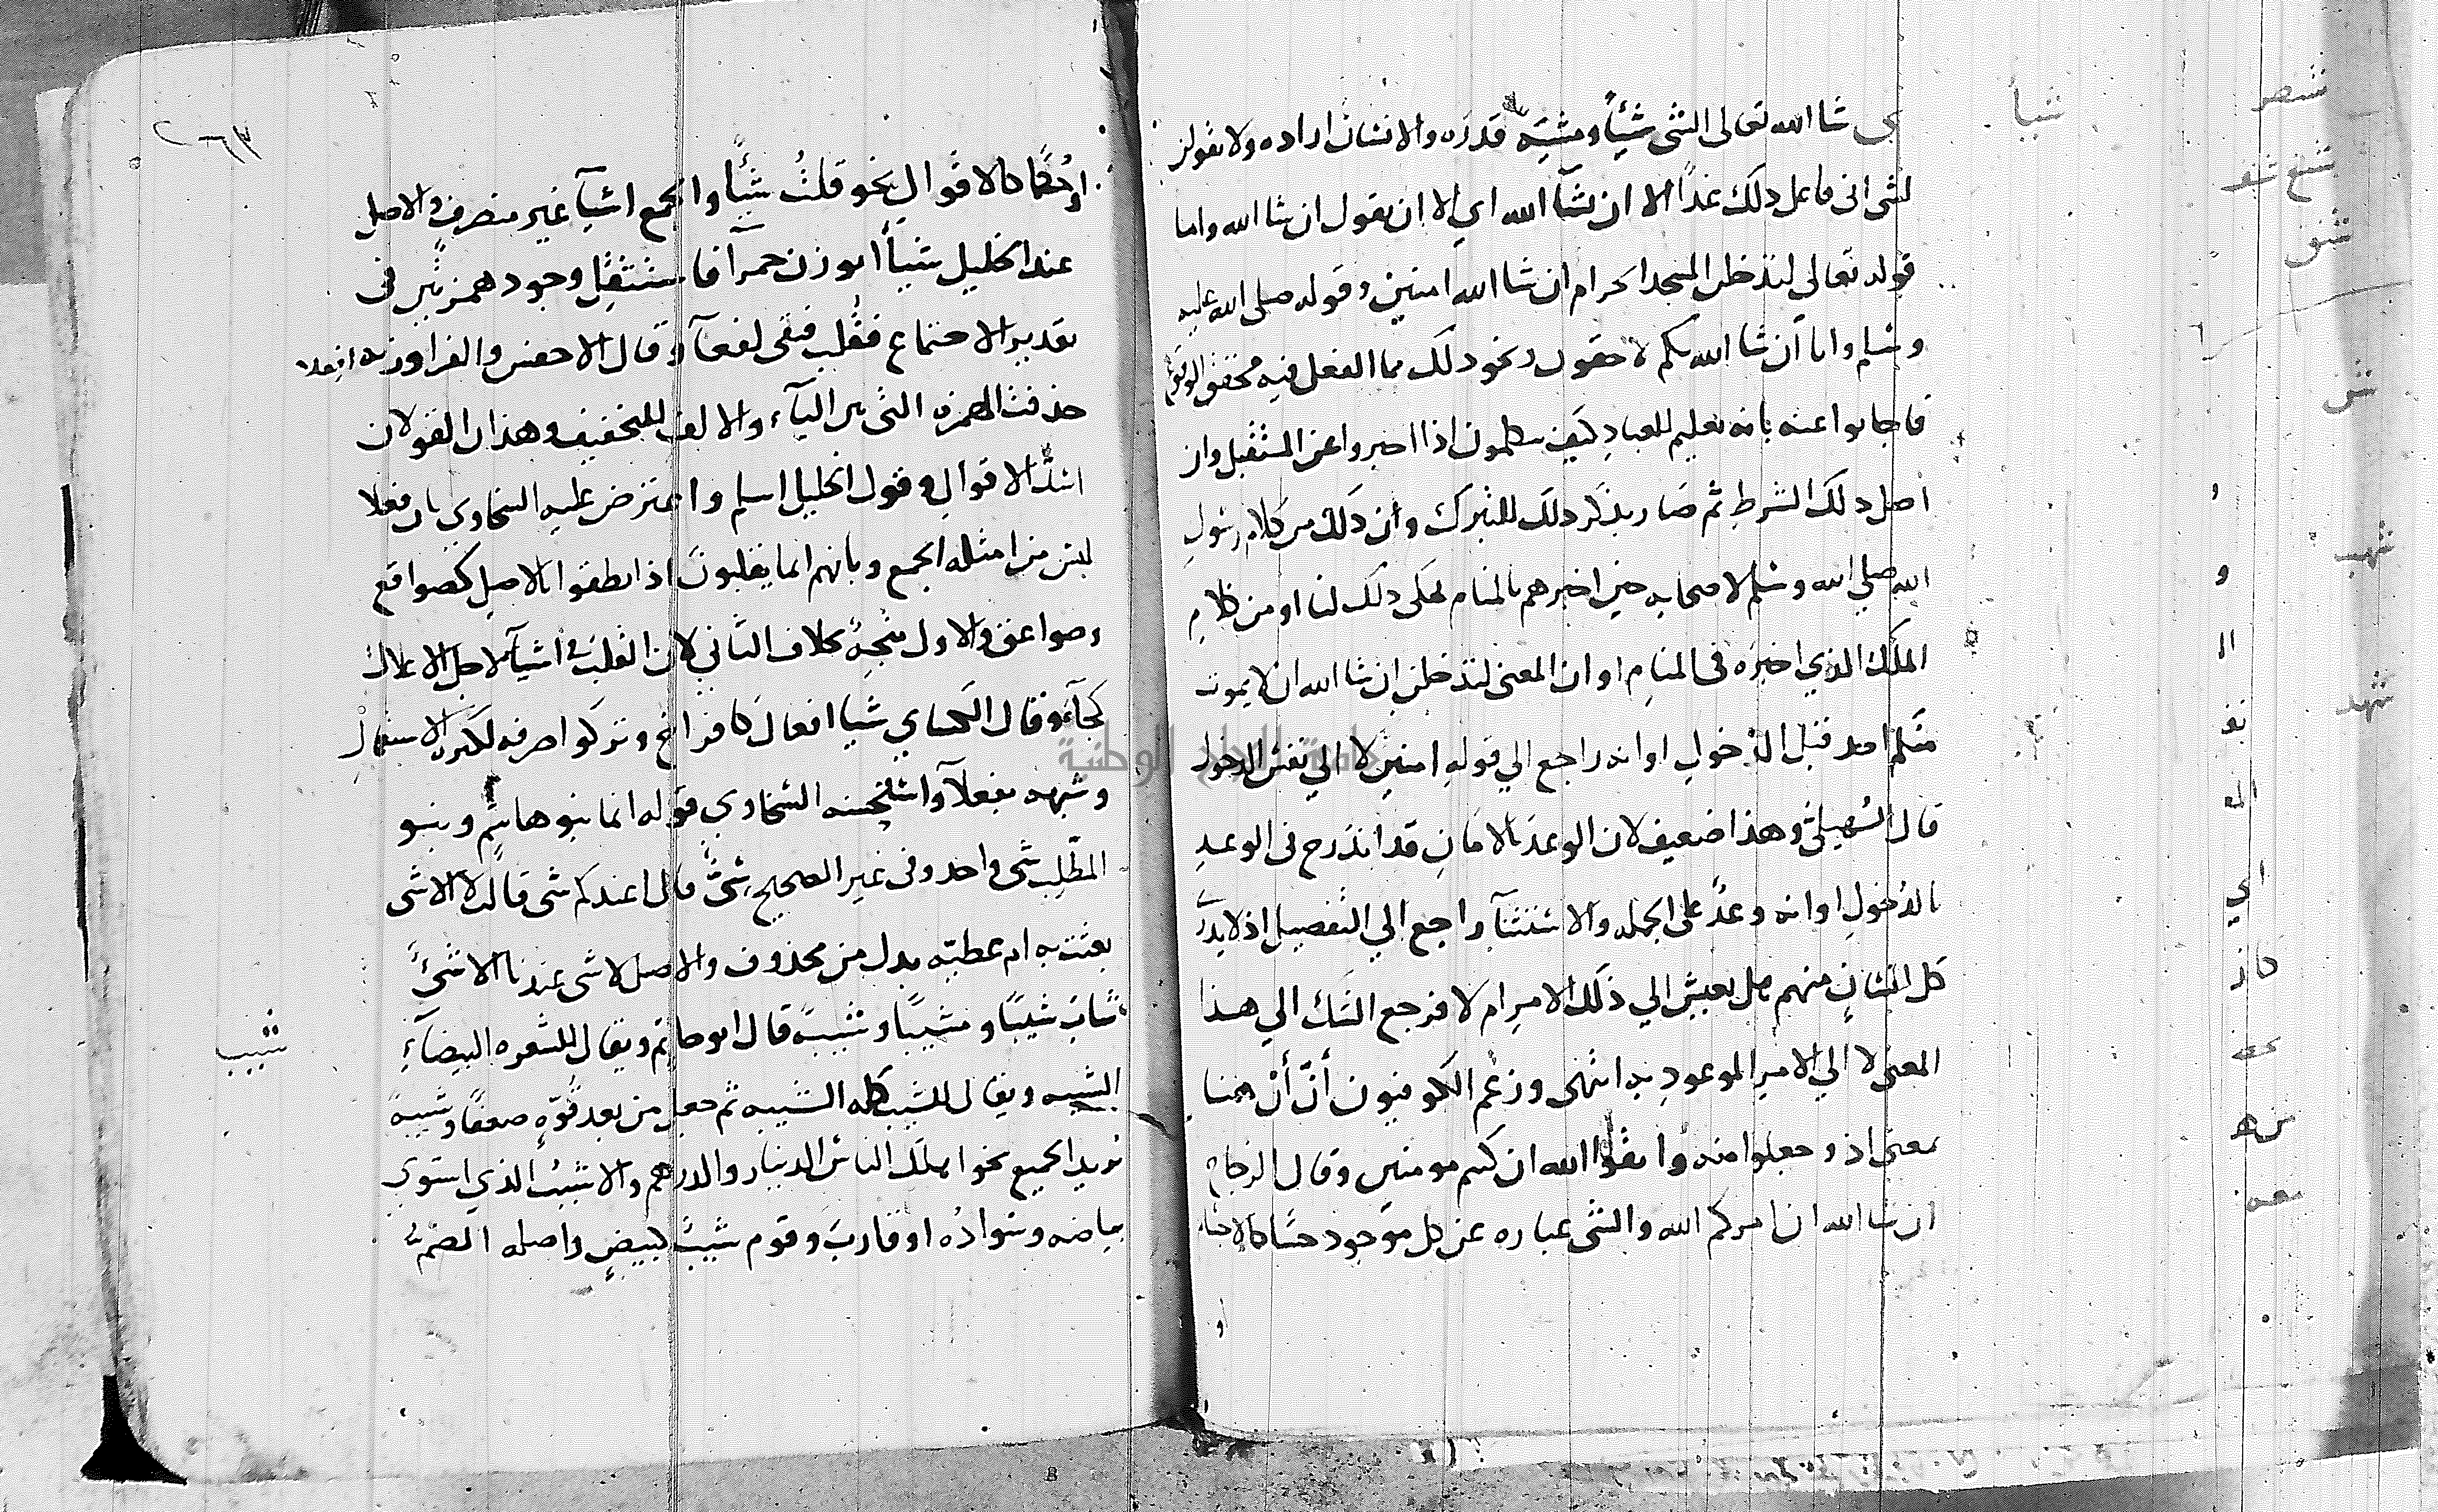 شيأ
ى شا الله تعالى الشى شيأ ومشية قدره والانسان اراده ولا تقولن
لشى انى فاعل ذلك غدا الا ان يشآ الله اي الا ان يقول ان شا الله واما
قوله تعالى لتدخلن المسجد الحرام ان شا الله امنين وقوله صلى الله عليه
وسلم وانا ان شا الله بكم لاحقون ونحو ذلك مما الفعل فيه محقق الوقوع
فاجابوا عنه بانه تعليم للعباد كيف يتكلمون اذا اخبروا عن المستقبل وان
اصل ذلك الشرط ثم صار يذكر ذلك للتبرك وان ذلك من كلام رسول
الله صلى الله وسلم لاصحابه حين اخبرهم بالمنام فحكى ذلك لنا او من كلام
الملك الذي اخبره فى المنام او ان المعنى لتدخلن ان شا الله ان لا يموت
منكم احد قبل الدخول او انه راجع الي قوله امنين لا الي نفس الدخول
قال السهيلي وهذا ضعيف لان الوعد بالامان قد اندرج فى الوعد
بالدخول او انه وعد على الجمله والاستثنآ راجع الي التفصيل اذ لا يدري
كل انسان منهم هل يعيش الي ذلك الامر ام لا فرجع الشك الي هذا
المعنى لا الي الامر الموعود به انتهى وزعم الكوفيون أنّ أنْ هنا
بمعنى اذ وجعلوا منه واتقوا الله ان كنتم مومنين وقال الزجاج
ان شا الله ان امركم الله والشى عباره عن كل موجود حسا كالاجسام
او
٢٦٣
او حكما كالاقوال نحو قلت شيأ والجمع اشيآ غير منصرف والاصل
عند الخليل شيآ بوزن حمرآ فاستثقل وجود همزتين فى
تقدير الاجتماع فقلب فبقى لفعآ وقال الاخفش والفرا وزنه افعلا
حذفت الهمزه التى بين اليآء والالف للتخفيف وهذان القولان
اسد الاقوال وقول الخليل اسلم واعترض عليه السخاوي بان فعلا
ليس من امثله الجمع وبانهم انما يقلبون اذا نطقوا بالاصل كصواقع
وصواعق والاول متجه بخلاف الثاني لان القلب فى اشيآ لاجل الاعلال
كجآء وقال الكساي شيا افعال كافراخ وتركوا صرفه لكثره الاستعمال
وشبهه بفعلآ واستحسنه السخاوي قوله انما بنو هاشم وبنو
المطّلب شى واحد وفى غير الصحيح سىّ قال اعندكم شى قالت لا الا شى
بعثت به ام عطيّه بدل من محذوف والاصل لا شى عندنا الا شئ
شيب
شاب شيبا ومشيبا وشيبة قال ابو حاتم ويقال للشعره البيضآء
الشيبه ويقال للشيب كله الشيبه ثم جعل من بعد قوّه ضعفا وشيبة
يريد الجميع نحو اهلك الناس الدينار والدرهم والاشيب الذي استوى
بياضه وسواده او قارب وقوم شيب كبيض واصله الضم